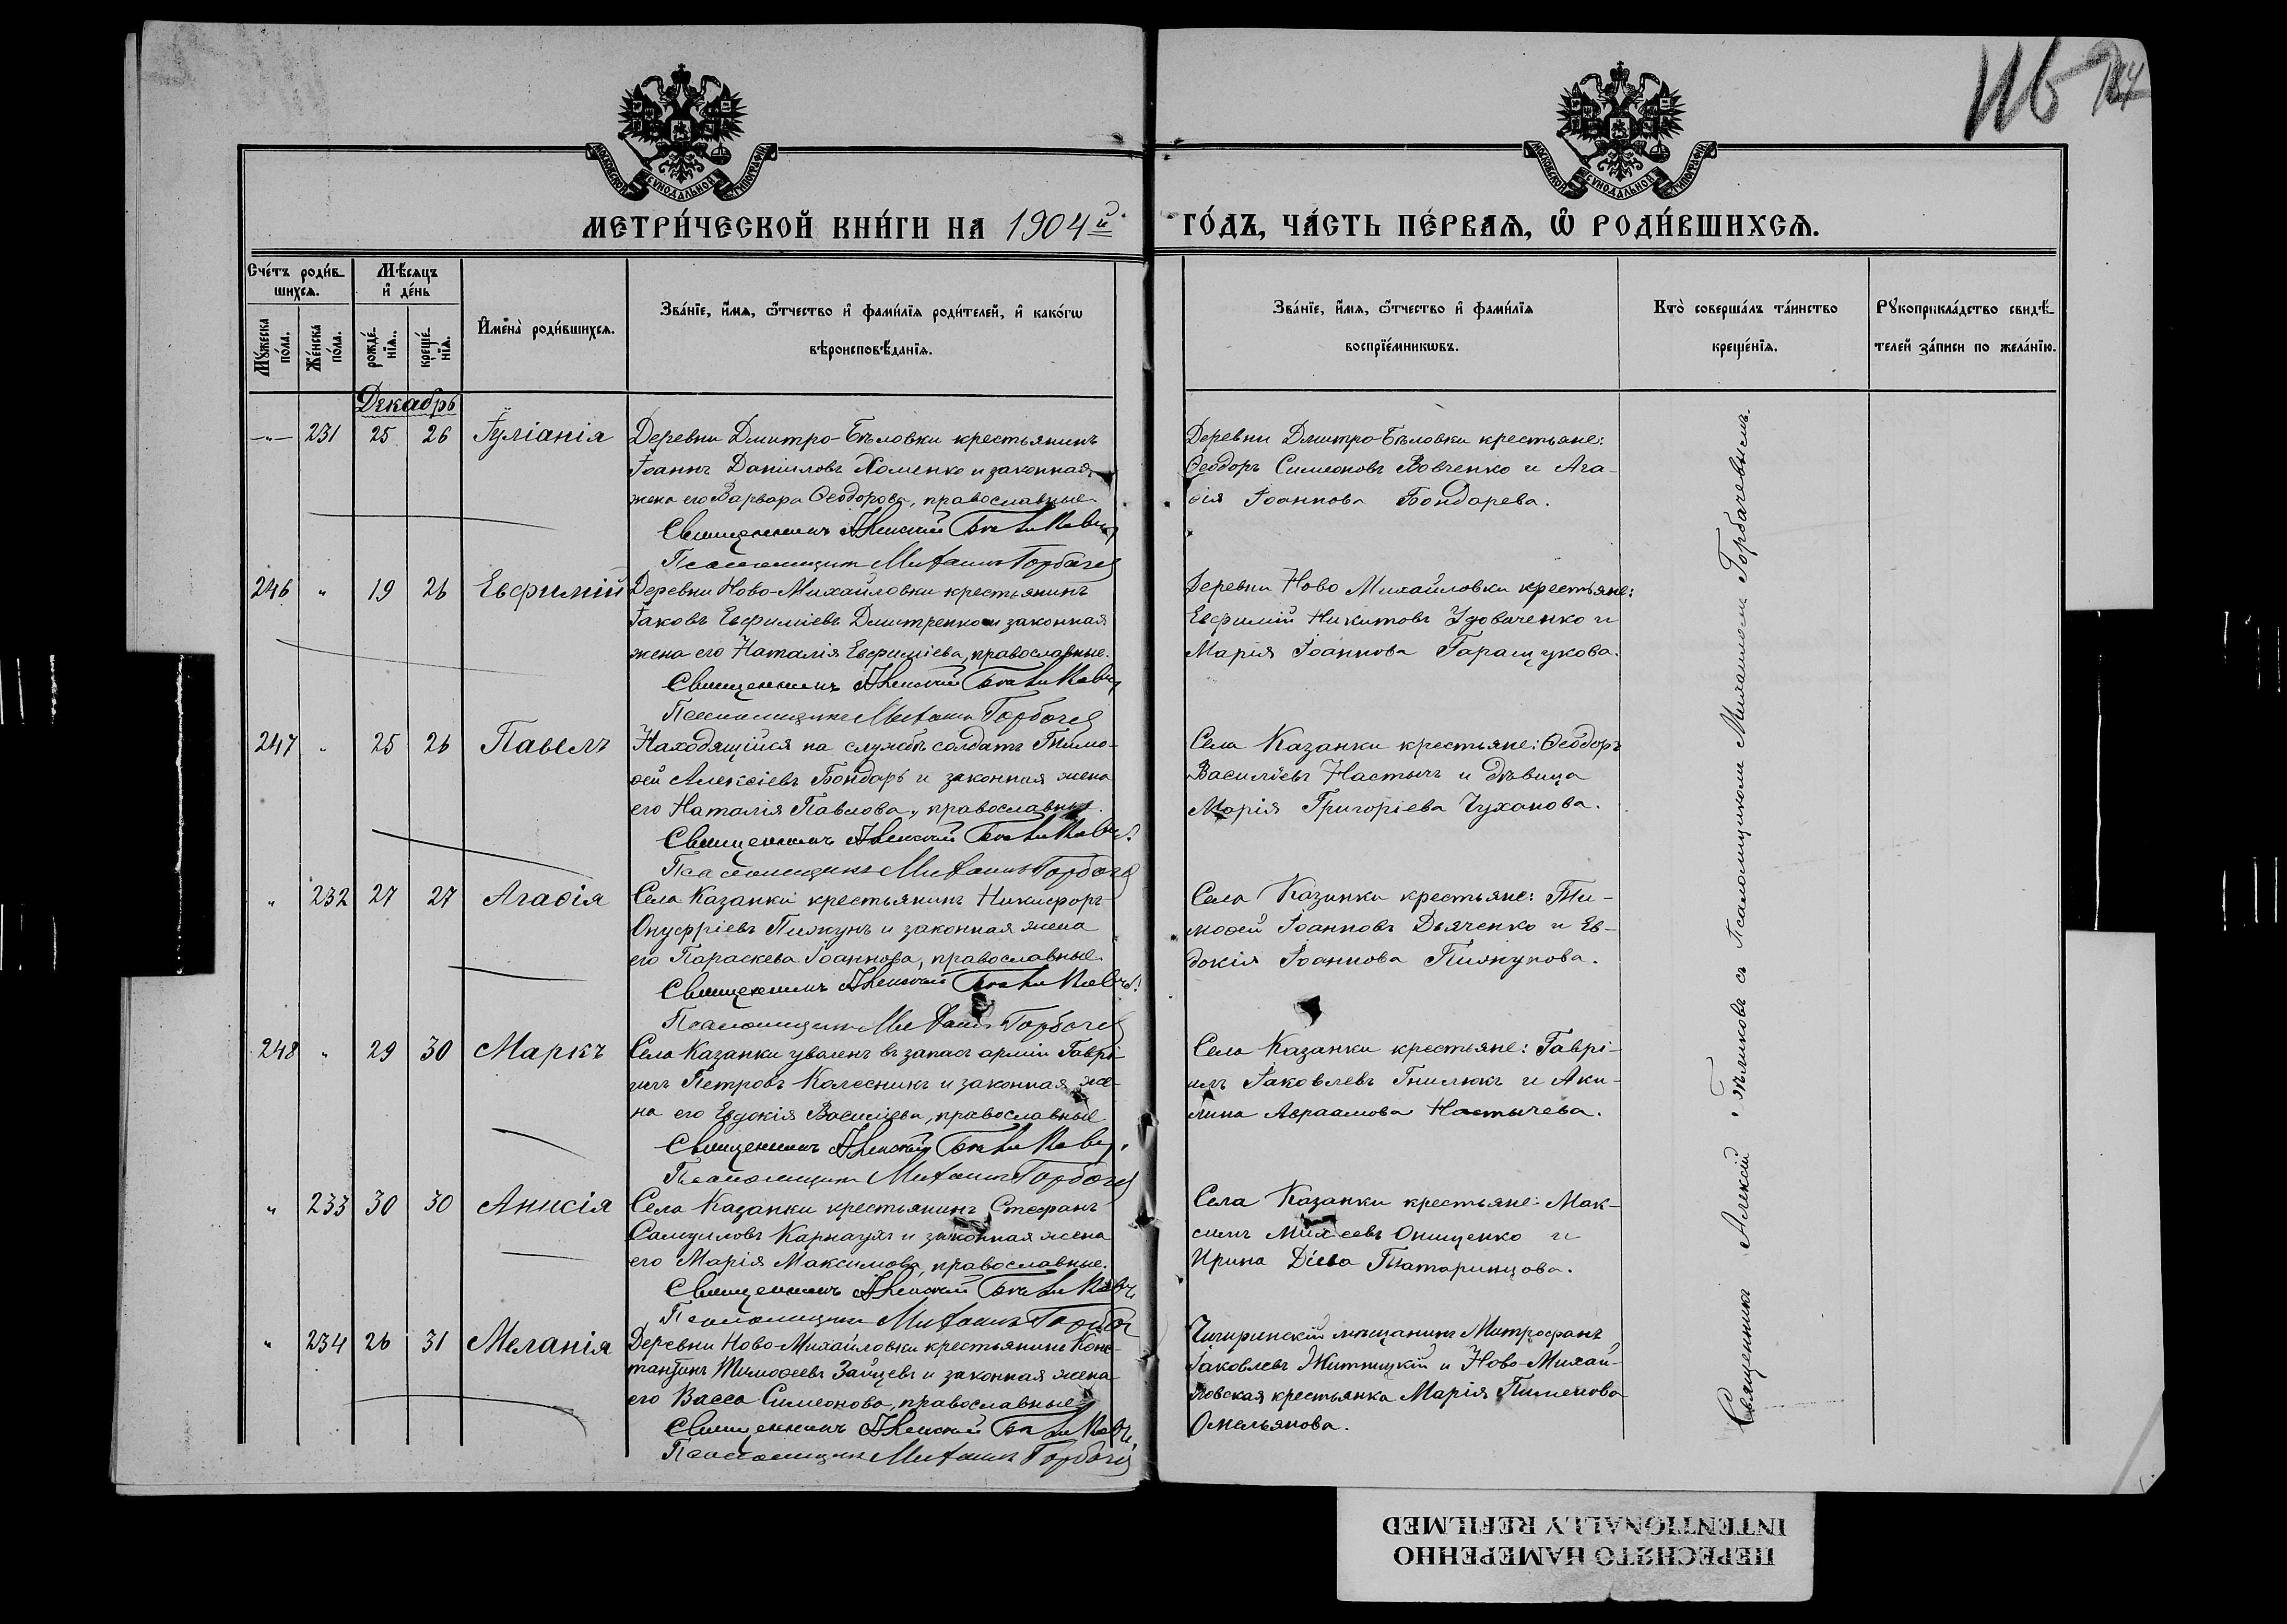 116
МОСКОВСКОЙ СУНОДАЛЬНОЙ ТИПОГРАФІИ
МОСКОВСКОЙ СУНОДАЛЬНОЙ ТИПОГРАФІИ
МЕТРИ́ЧЕСКОЙ КНИ́ГИ НА 1904й
ГО́ДЪ, ЧА́СТЬ ПЕ́РВАѦ, Ѽ РОДИ́ВШИХСѦ.
Сче́тъ роди́в-
шихсѧ.
Мѣ́сѧцъ
и҆ де́нь
Мꙋ́жеска
по́ла.
Же́нска
по́ла.
рожде́-
нїѧ.
креще́-
нїѧ.
И҆мена̀ роди́вшихсѧ.
Зва́нїе, и҆́мѧ, ѻ҆́тчество и҆ фами́лїѧ роди́телей, и҆ како́гѡ
вѣроисповѣ́данїѧ.
Зва́нїе, и҆́мѧ, ѻ҆́тчество и҆ фами́лїѧ
воспрїе́мникѡвъ.
Кто̀ соверша́лъ та́инство
креще́нїѧ.
Рꙋкоприкла́дство свидѣ́-
телей за́писи по жела́нїю.
Декабрь
-"- 231 25 26 Іуліанія Деревни Дмитро-Бѣловки крестьянинъ
Іоаннъ Даніиловъ Хоменко и законная
жена его Варвара Ѳеодорова, православные
Священникъ Алексій Бѣликовъ
Псаломщикъ Михаилъ Горбачев
Деревни Дмитро-Бѣловки крестьяне:
Ѳеодоръ Симеоновъ Вовченко и Ага-
ѳія Іоаннова Бондарева.
246 " 19 26 Евфимій Деревни Ново-Михайловки крестьянинъ
Іаковъ Евфиміевъ Дмитренко и законная
жена его Наталія Евфиміева, православные.
Священникъ Алексій Бѣликовъ
Псаломщикъ Михаилъ Горбачев
Деревни Ново Михайловки крестьяне:
Евфимій Никитовъ Удовиченко и
Марія Іоаннова Геращукова.
247 " 25 26 Павелъ Находящійся на службѣ солдатъ Тимо-
ѳей Алексіевъ Бондарь и законная жена
его Наталія Павлова, православные.
Священникъ Алексій Бѣликовъ
Псаломщикъ Михаилъ Горбачев
Села Казанки крестьяне: Ѳеодоръ
Василіевъ Настычъ и дѣвица
Марія Григоріева Чуханова.
" 232 27 27 Агаѳія Села Казанки крестьянинъ Никифоръ
Онуфріевъ Пижунъ и законная жена
его Параскева Іоаннова, православные.
Священникъ Алексій Бѣликовъ
Псаломщикъ Михаилъ Горбачев
Села Казанки крестьяне: Ти-
моѳей Іоанновъ Дьяченко и Ев-
докія Іоаннова Пижунова.
248 " 29 30 Маркъ Села Казанки уволенъ въ запасъ арміи Гаврі-
илъ Петровъ Колесникъ и законная же-
на его Евдокія Василіева, православные
Священникъ Алексій Бѣликовъ.
Псаломщикъ Михаилъ Горбачев
Села Казанки крестьяне: Гаврі-
илъ Іаковлевъ Гнилюкъ и Аки-
лина Авраамова Настычева.
" 233 30 30 Анисія Села Казанки крестьянинъ Стефанъ
Самуиловъ Карнаухъ и законная жена
его Марія Максимова, православные.
Священникъ Алексій Бѣликовъ
Псаломщикъ Михаилъ Горбач
Села Казанки крестьяне: Мак-
симъ Михеевъ Онищенко и
Ирина Діева Татаринцова.
" 234 26 31 Меланія Деревни Ново-Михайловки крестьянинъ Конс-
тантинъ Тимоѳеевъ Зайцевъ и законная жена
его Васса Симеонова, православные.
Священникъ Алексій Бѣликовъ
Псаломщикъ Михаилъ Горбачев
Чигиринскій мѣщанинъ Митрофанъ
Іаковлевъ Житницкій и Ново-Михай-
ловская крестьянка Марія Пименова
Омельянова.
Священникъ Алексій Бѣликовъ съ Псаломщикомъ Михаиломъ Горбачевымъ.
ПЕРЕСНЯТО НАМЕРЕННО
INTENTIONALLY REFILMED